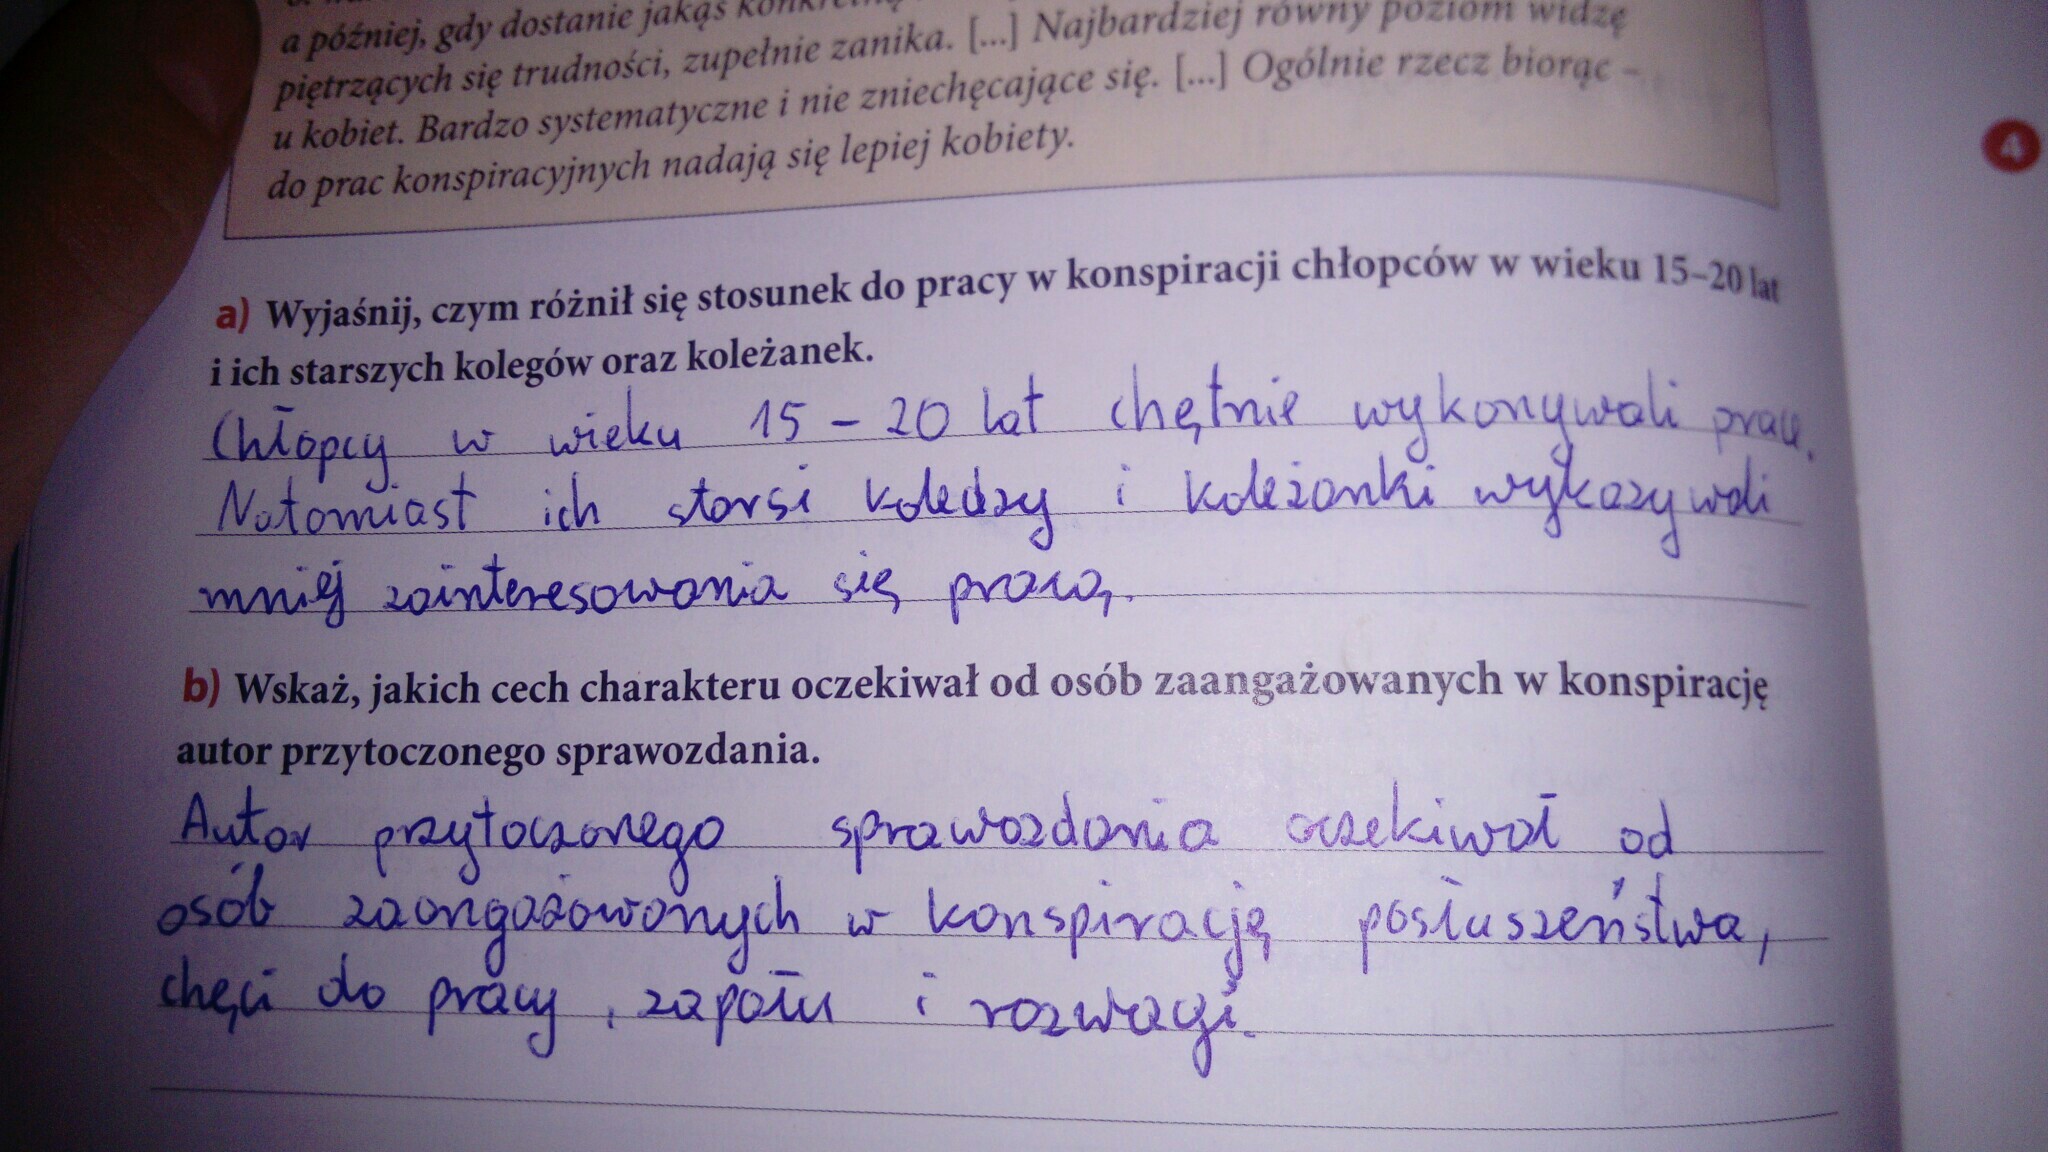 a później, gdy dostanie jakąś
piętrzących się trudności, zupełnie zanika. [...] Najbardziej równy poziom widzę
u kobiet. Bardzo systematyczne i nie zniechęcające się. [...] Ogólnie rzecz biorąc –
do prac konspiracyjnych nadają się lepiej kobiety.
4
a) Wyjaśnij, czym różnił się stosunek do pracy w konspiracji chłopców w wieku 15–20 lat
i ich starszych kolegów oraz koleżanek.
Chłopcy w wieku 15 – 20 lat chętnie wykonywali pracę.
Natomiast ich starsi koledzy i koleżanki wykazywali
mniej zainteresowania się pracą.
b) Wskaż, jakich cech charakteru oczekiwał od osób zaangażowanych w konspirację
autor przytoczonego sprawozdania.
Autor przytoczonego sprawozdania oczekiwał od
osób zaangażowanych w konspirację posłuszeństwa,
chęci do pracy, zapału i rozwagi.